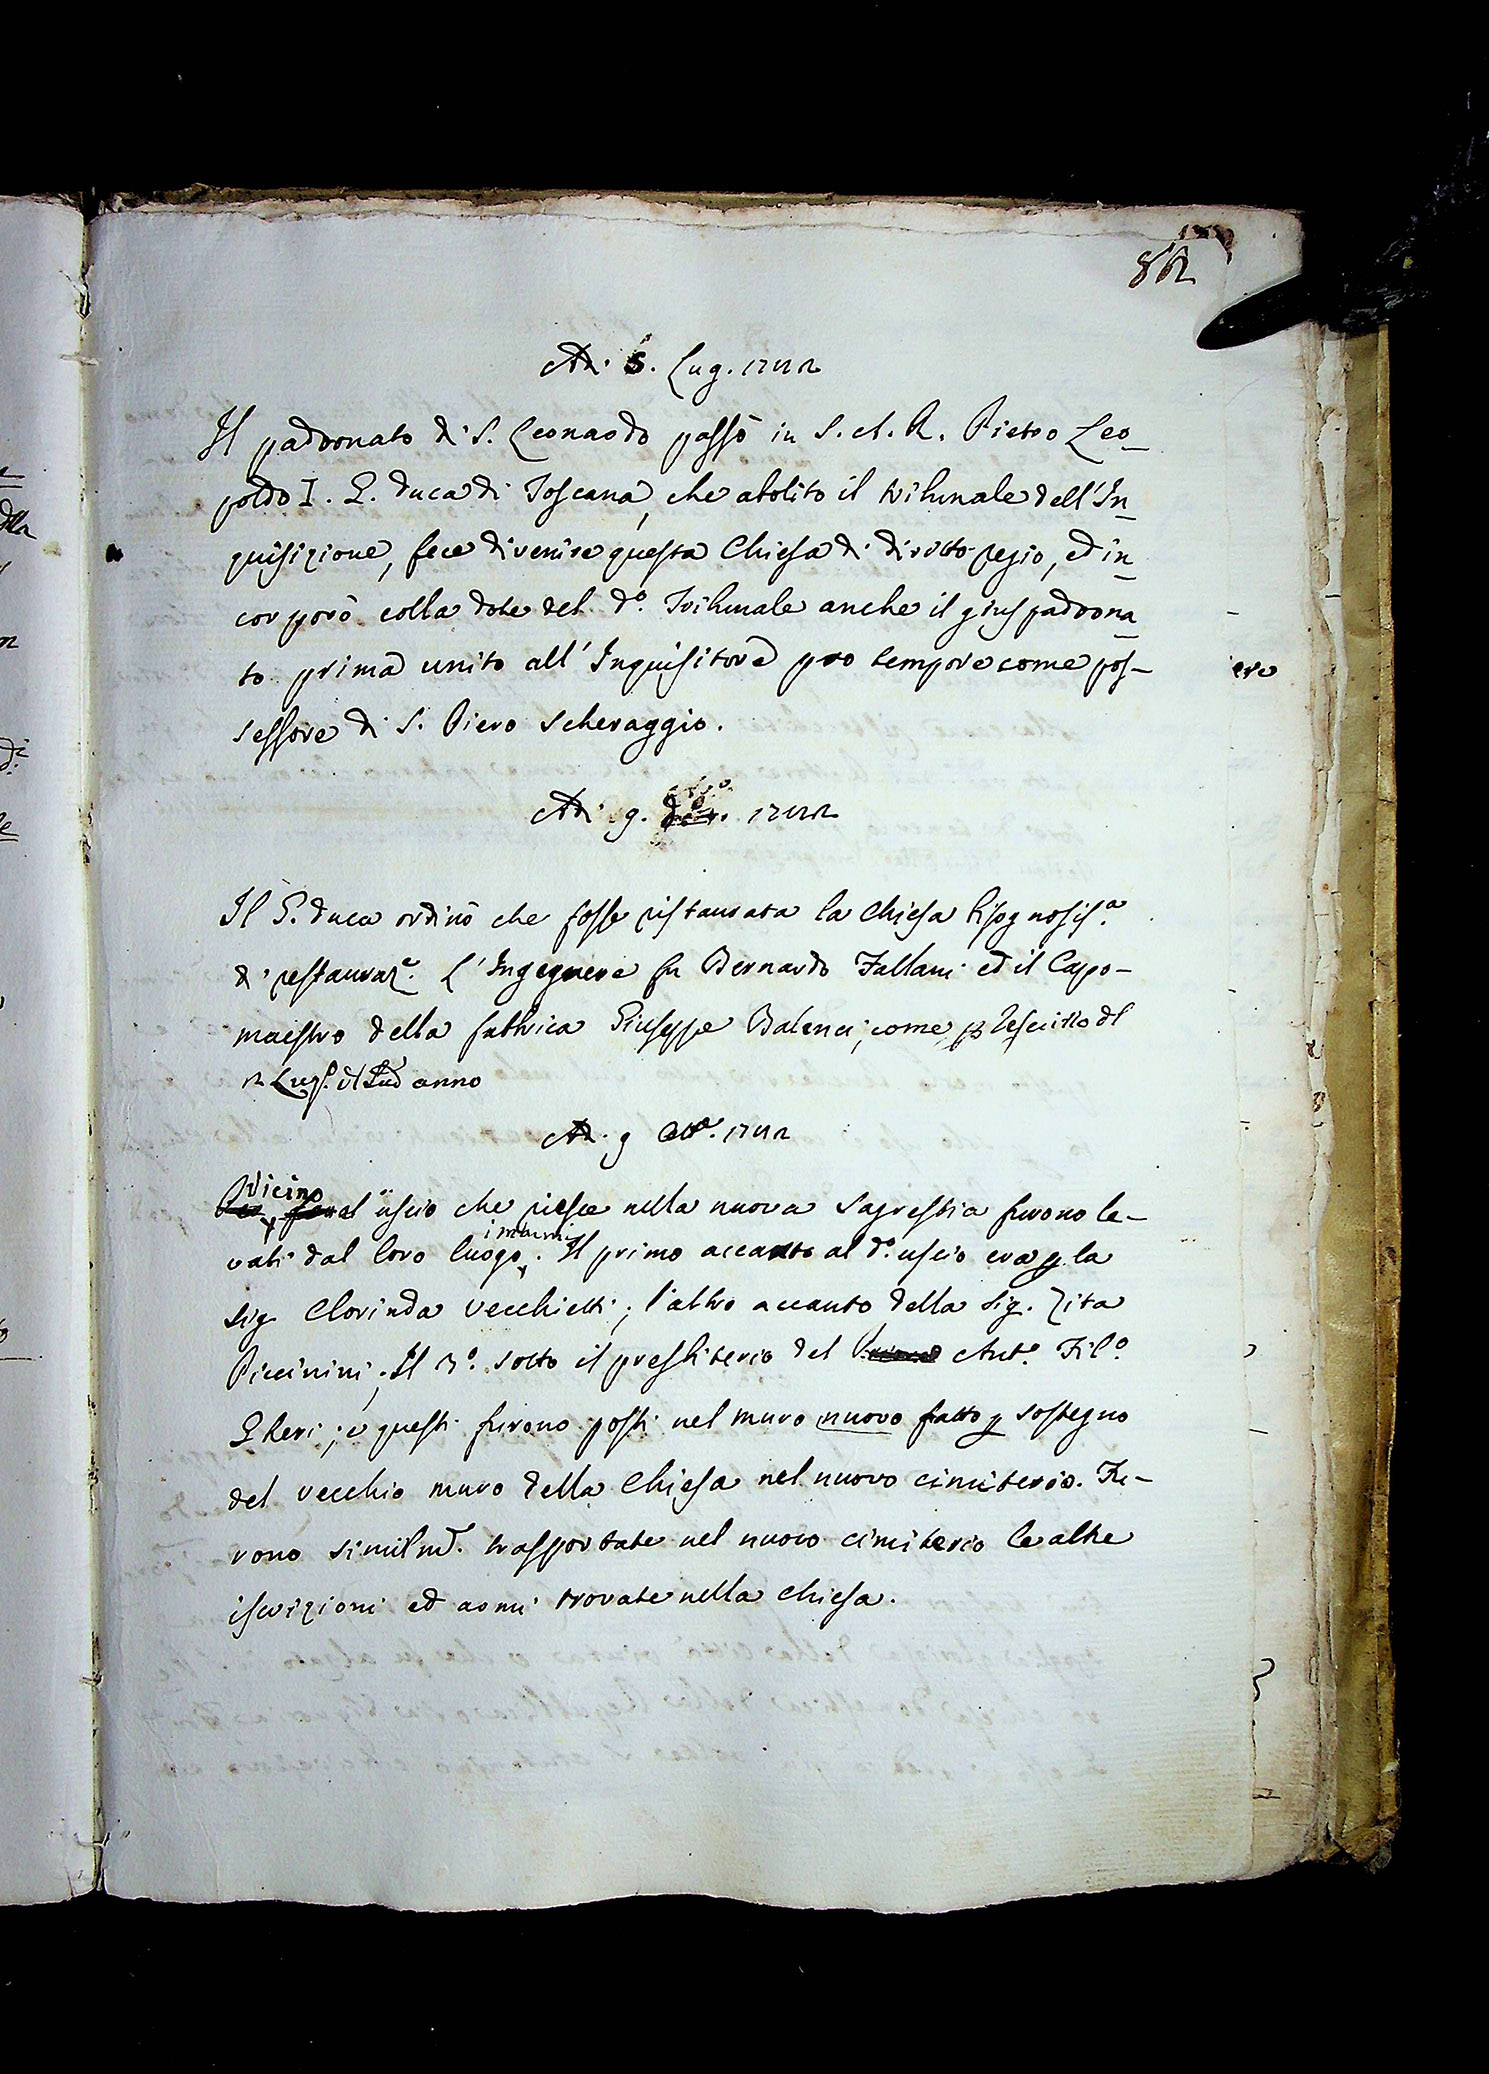 82
Adi 5. Lug. 1782
Il padronato di S. Leonardo passò in S. A. R. Pietro Leo-
poldo I. G. duca di Toscana, che abolito il tribunale dell'In-
quisizione, fece divenire questa Chiesa di diritto regio, ed in-
corporò colla dote del do. Tribunale anche il giuspadrona-
to prima unito all'Inquisitore pro tempore come pos-
sessore di S. Piero Scheraggio.
Adi 9. 1782
Il G. duca ordinò che fosse ristaurata la Chiesa bisognosisa.
di restauraze. L'Ingegnere fu Bernardo Fallani ed il Capo-
maestro della fabbrica Giuseppe Balenci, come p Rescritto dl
2 Lugo. dl anno
Adi 9 1782
vicino
al uscio che riesce nella nuova Sagrestia furono le-
i marmi
vati dal loro luogo. Il primo accanto al do. uscio era p la
Sig. Clorinda Vecchietti; l'altro accanto della Sig. Zita
Piccinini; Il 3o. sotto il presbiterio del Anto. Filo.
Gheri; e questi furono posti nel muro nuovo fatto p sostegno
del vecchio muro della Chiesa nel nuovo cimiterio. Fu-
rono similme. trasportate nel nuovo cimiterio le altre
iscrizioni ed armi trovate nella chiesa.
ere